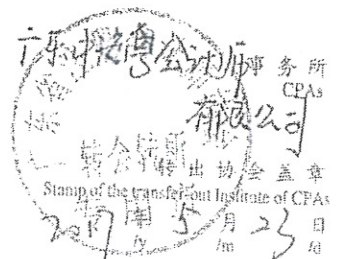 会计师事务所
CPAs
有限公司
转出协会盖章
Stamp of the transfer-out Institute of CPAs
2017年 5月 23日
/y /m /d